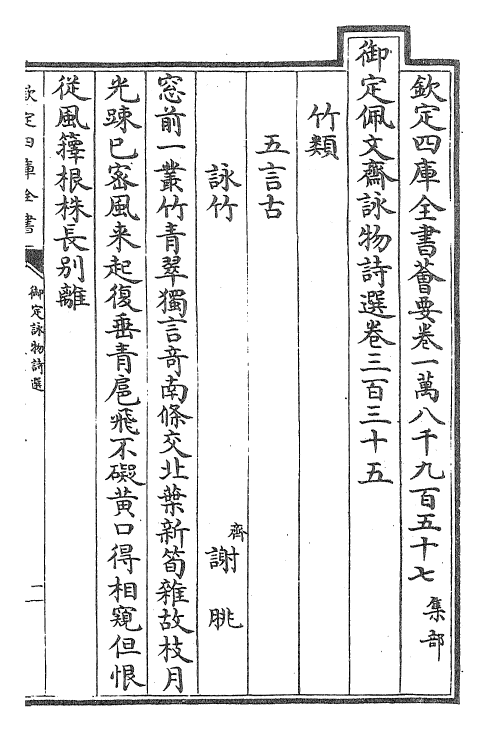 欽定四庫全書薈要卷一萬八千九百五十七 集部
御定佩文齋詠物詩選卷三百三十五
竹類
五言古
詠竹 齊 謝朓
窓前一叢竹青翠獨言竒南條交北葉新筍雜故枝月
光踈已宻風来起復垂青扈飛不礙黄口得相窺但恨
從風籜根株長别離
欽定四庫全書 御定詠物詩選 二